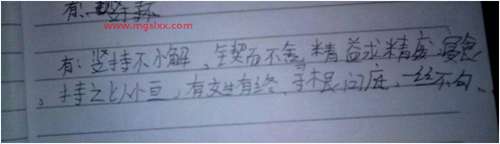 有
www.mgslxx.com
有:坚持不小解、锲而不舍、精益求精、废寝食
、持之以小亘、有始有终、寻根问底、一丝不勾、